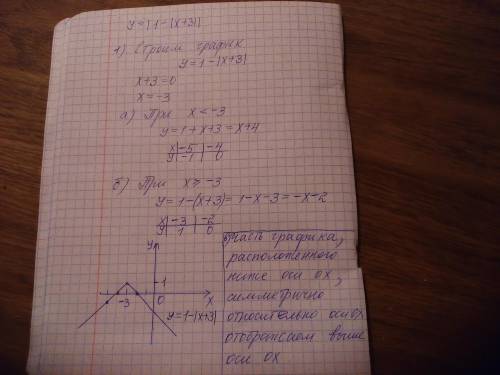 y=|1-|x+3||
1) Строим график
y=1-|x+3|
x+3=0
x=-3
а) При x<-3
y=1+x+3=x+4
x|-5|-4
y|-1|0
б) При x≥-3
y=1-(x+3)=1-x-3=-x-2
x|-3|-2
y|1|0
y
1
-3
0
x
y=1-|x+3|
часть графика,
расположенного
ниже оси ox,
симметрично
относительно оси ox
отображаем выше
оси ox